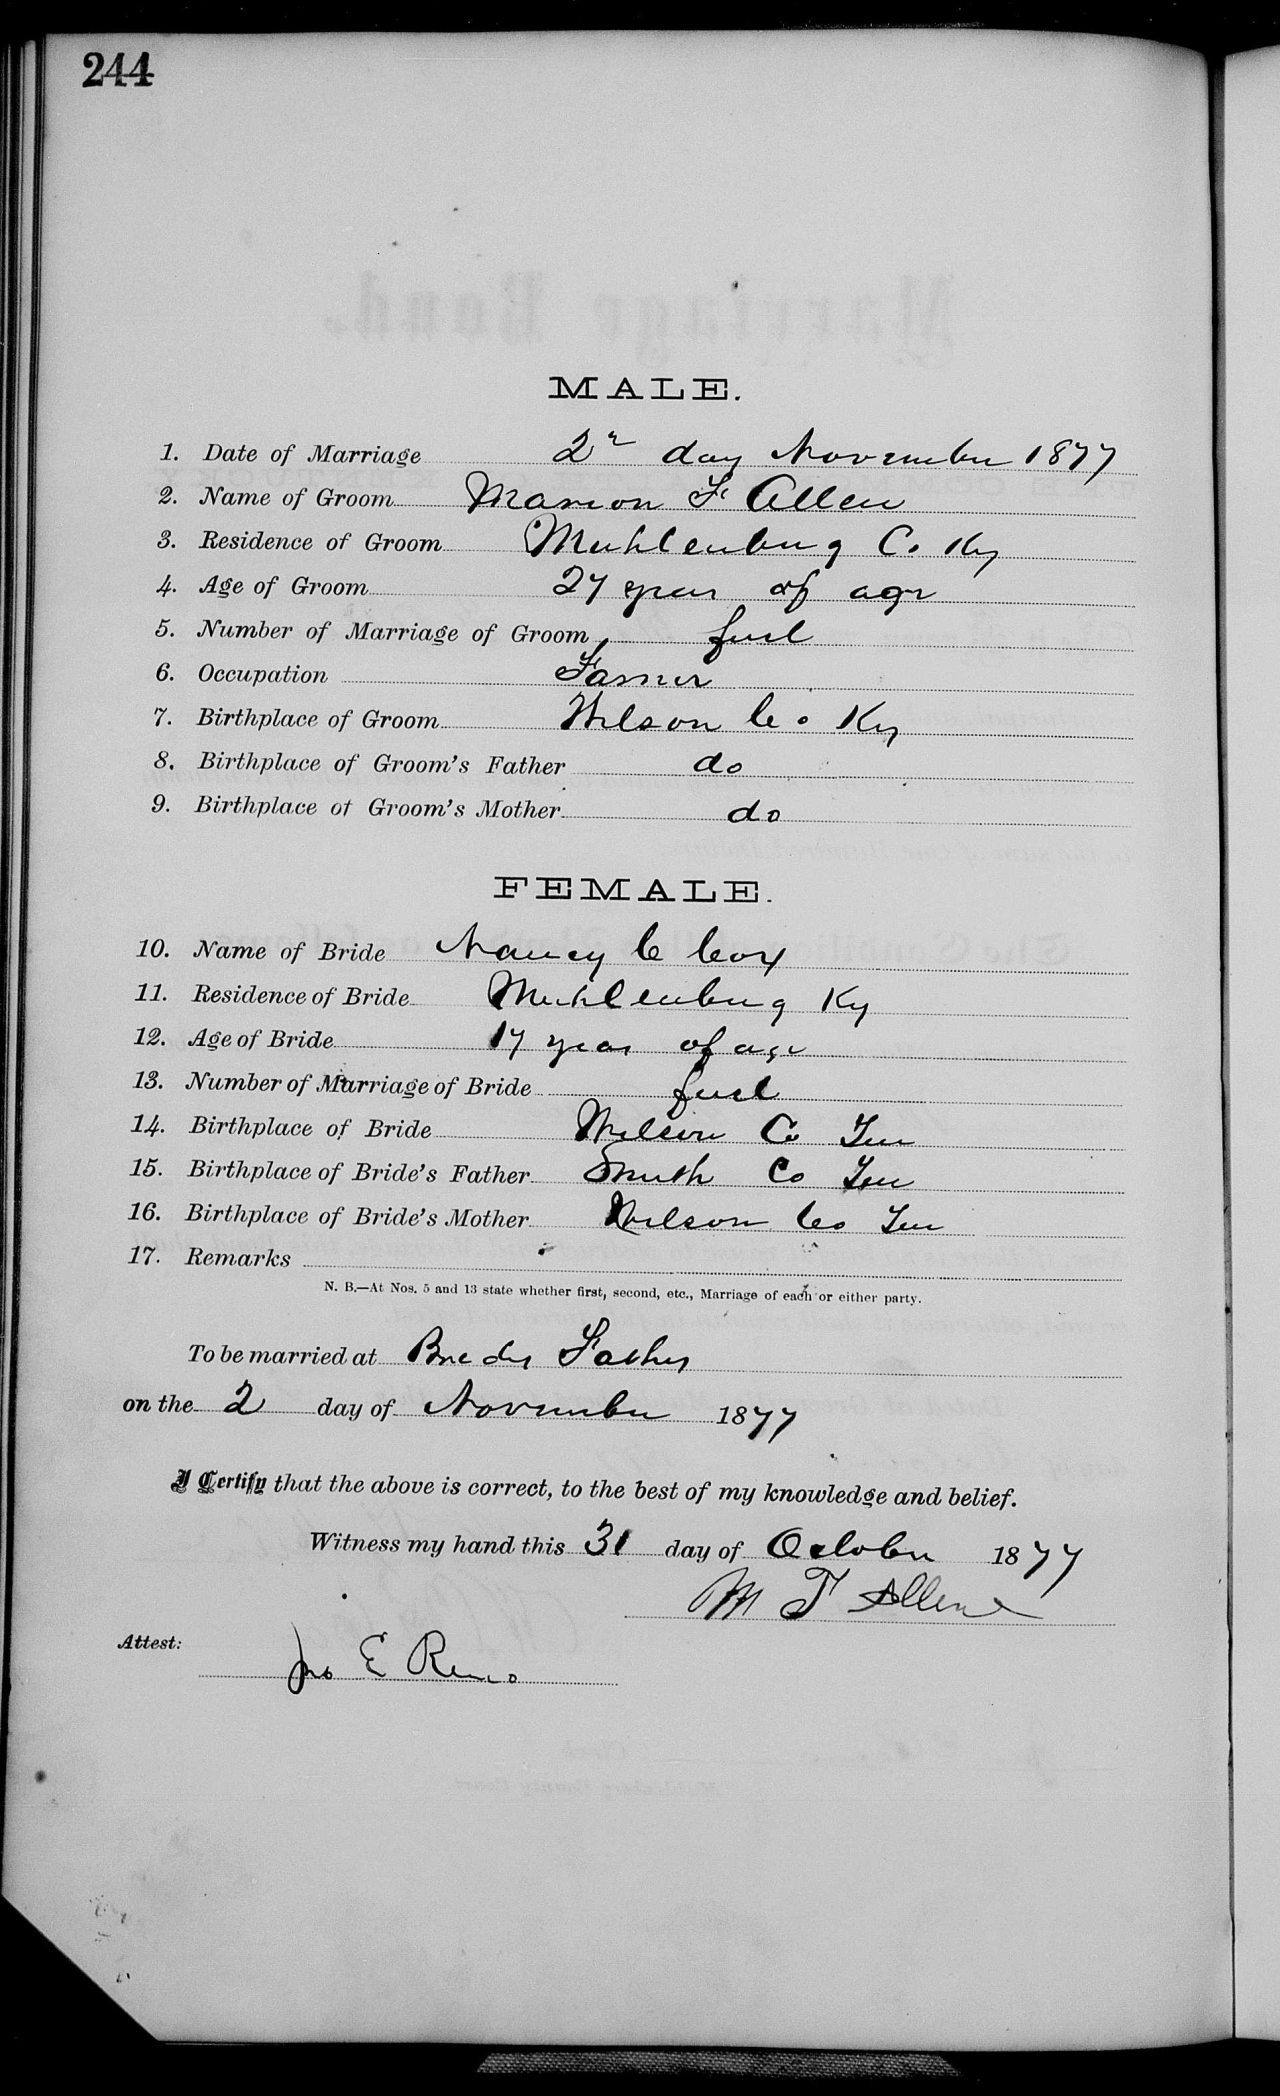 244
MALE.
1. Date of Marriage 2n day November 1877
2. Name of Groom Marion F Allen
3. Residence of Groom Muhlenburg C. Ky
4. Age of Groom 27 years of age
5. Number of Marriage of Groom first
6. Occupation Farmer
7. Birthplace of Groom Wilson Co Ky
8. Birthplace of Groom's Father do
9. Birthplace of Groom's Mother do
FEMALE.
10. Name of Bride Nancy C Cox
11. Residence of Bride Muhlenburg Ky
12. Age of Bride 17 years of age
13. Number of Marriage of Bride first
14. Birthplace of Bride Wilson Co Ten
15. Birthplace of Bride's Father Smith Co Ten
16. Birthplace of Bride's Mother Wilson Co Ten
17. Remarks
N. B.—At Nos. 5 and 13 state whether first, second, etc., Marriage of each or either party.
To be married at Brides Fathers
on the 2 day of November 1877
I Certify that the above is correct, to the best of my knowledge and belief.
Witness my hand this 31 day of October 1877
M F Allen
Attest:
Jno E Reno